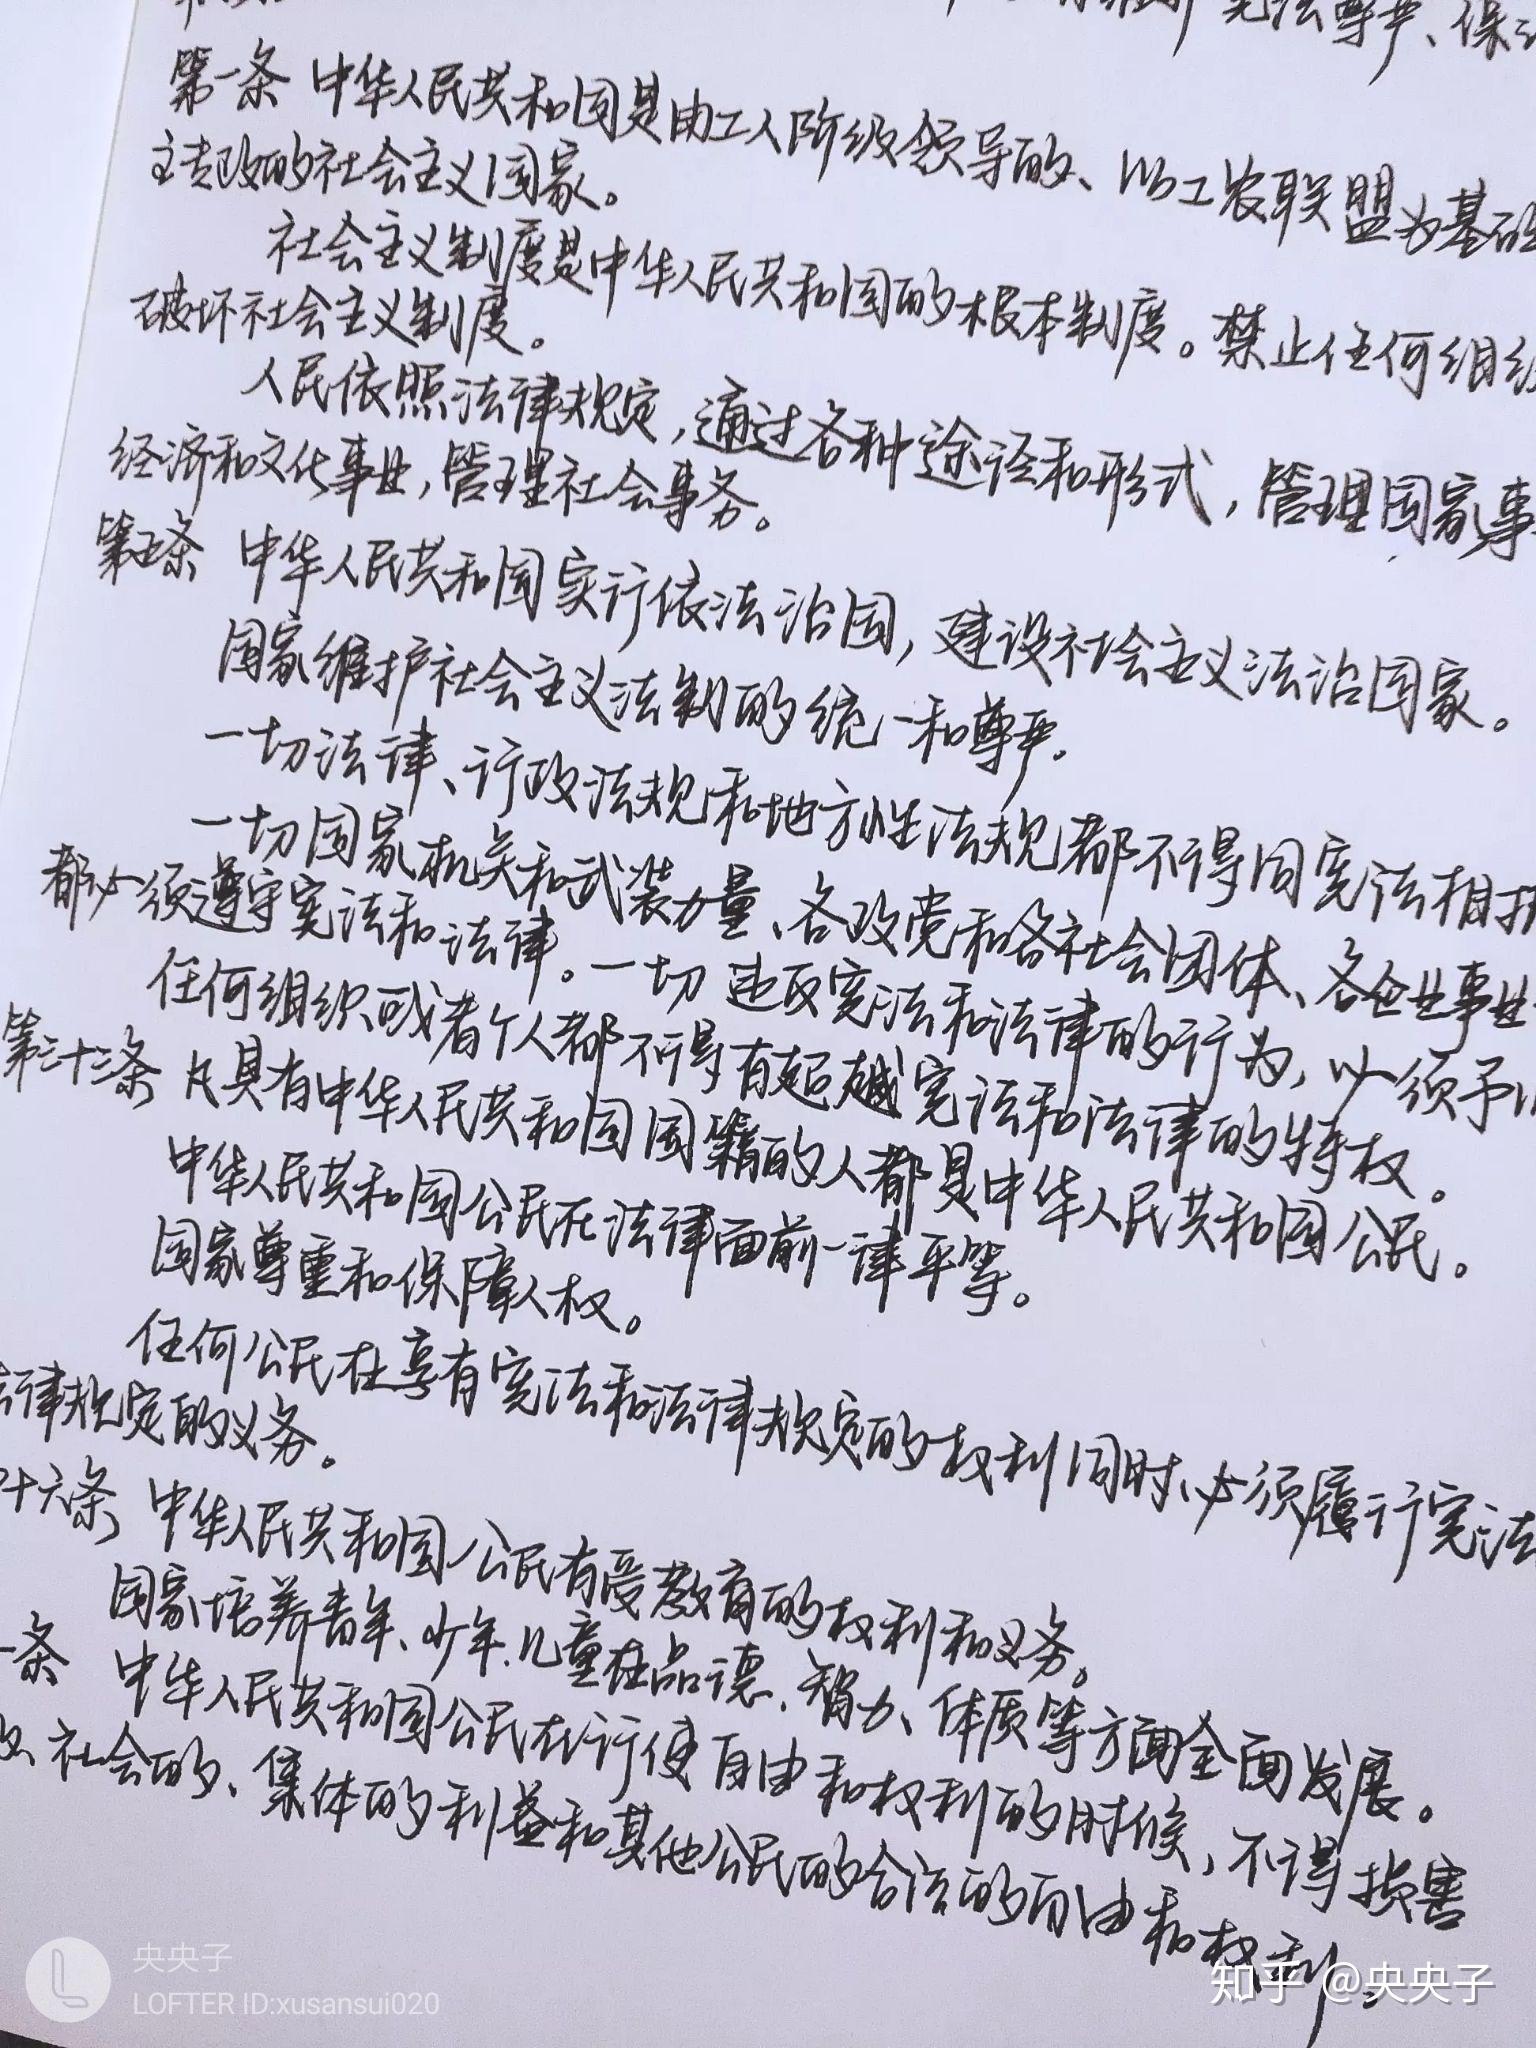 宪法尊严、保
第一条 中华人民共和国是由工人阶级领导的、以工农联盟为基础
主专政的社会主义国家。
社会主义制度是中华人民共和国的根本制度。禁止任何组织
破坏社会主义制度。
人民依照法律规定,通过各种途径和形式,管理国家事
经济和文化事业,管理社会事务。
第五条 中华人民共和国实行依法治国,建设社会主义法治国家。
国家维护社会主义法制的统一和尊严。
一切法律、行政法规和地方性法规都不得同宪法相抵
一切国家机关和武装力量、各政党和各社会团体、各企业事业
都必须遵守宪法和法律。一切违反宪法和法律的行为,必须予以
任何组织或者个人都不得有超越宪法和法律的特权。
第三十三条 凡具有中华人民共和国国籍的人都是中华人民共和国公民。
中华人民共和国公民在法律面前一律平等。
国家尊重和保障人权。
任何公民在享有宪法和法律规定的权利同时,必须履行宪法
法律规定的义务。
十六条 中华人民共和国公民有受教育的权利和义务。
国家培养青年、少年、儿童在品德、智力、体质等方面全面发展。
一条 中华人民共和国公民在行使自由和权利的时候,不得损害
的、社会的、集体的利益和其他公民的合法的自由和权利。
央央子
LOFTER ID:xusansui020
知乎 @央央子